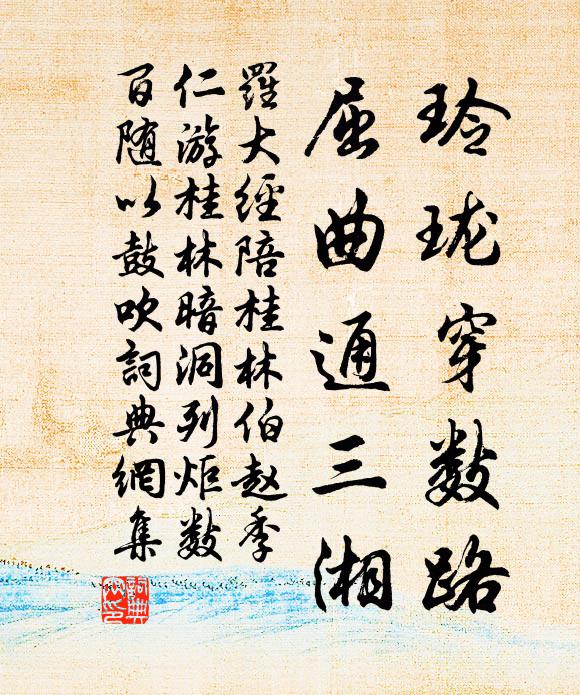 玲珑穿数路
屈曲通三湘
羅大經陪桂林伯赵季
仁游桂林暗洞列炬数
百随以鼓吹詞典網集